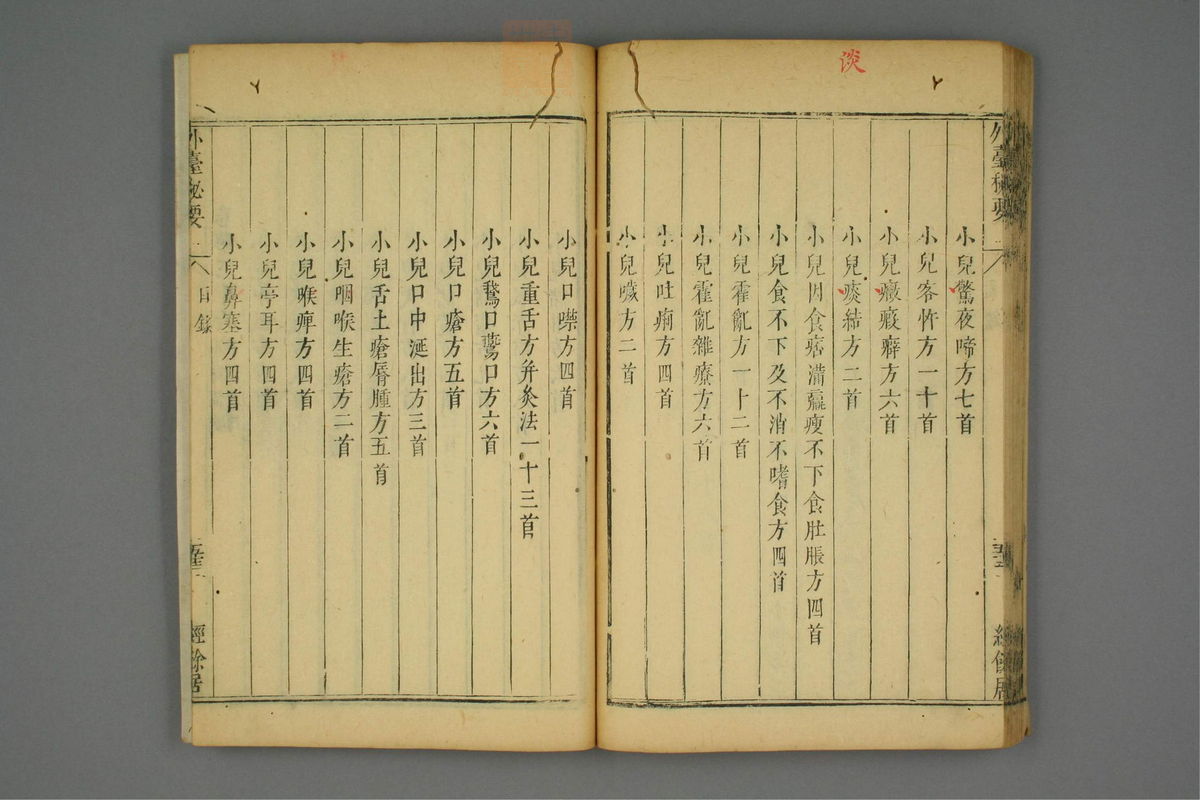 淡
小兒驚夜啼方七首
小兒客忤方一十首
小兒癥瘕癖方六首
小兒痰結方二首
小兒因食痞滿羸瘦不下食肚脹方四首
小兒食不下及不消不嗜食方四首
小兒霍亂方一十二首
小兒霍亂雜療方六首
小兒吐痢方四首
小兒噦方二首
小兒口噤方四首
小兒重舌方并灸法一十三首
小兒鵞口鷰口方六首
小兒口瘡方五首
小兒口中涎出方三首
小兒舌上瘡脣腫方五首
小兒咽喉生瘡方二首
小兒喉痺方四首
小兒亭耳方四首
小兒鼻塞方四首
外臺秘要
目錄
經餘居